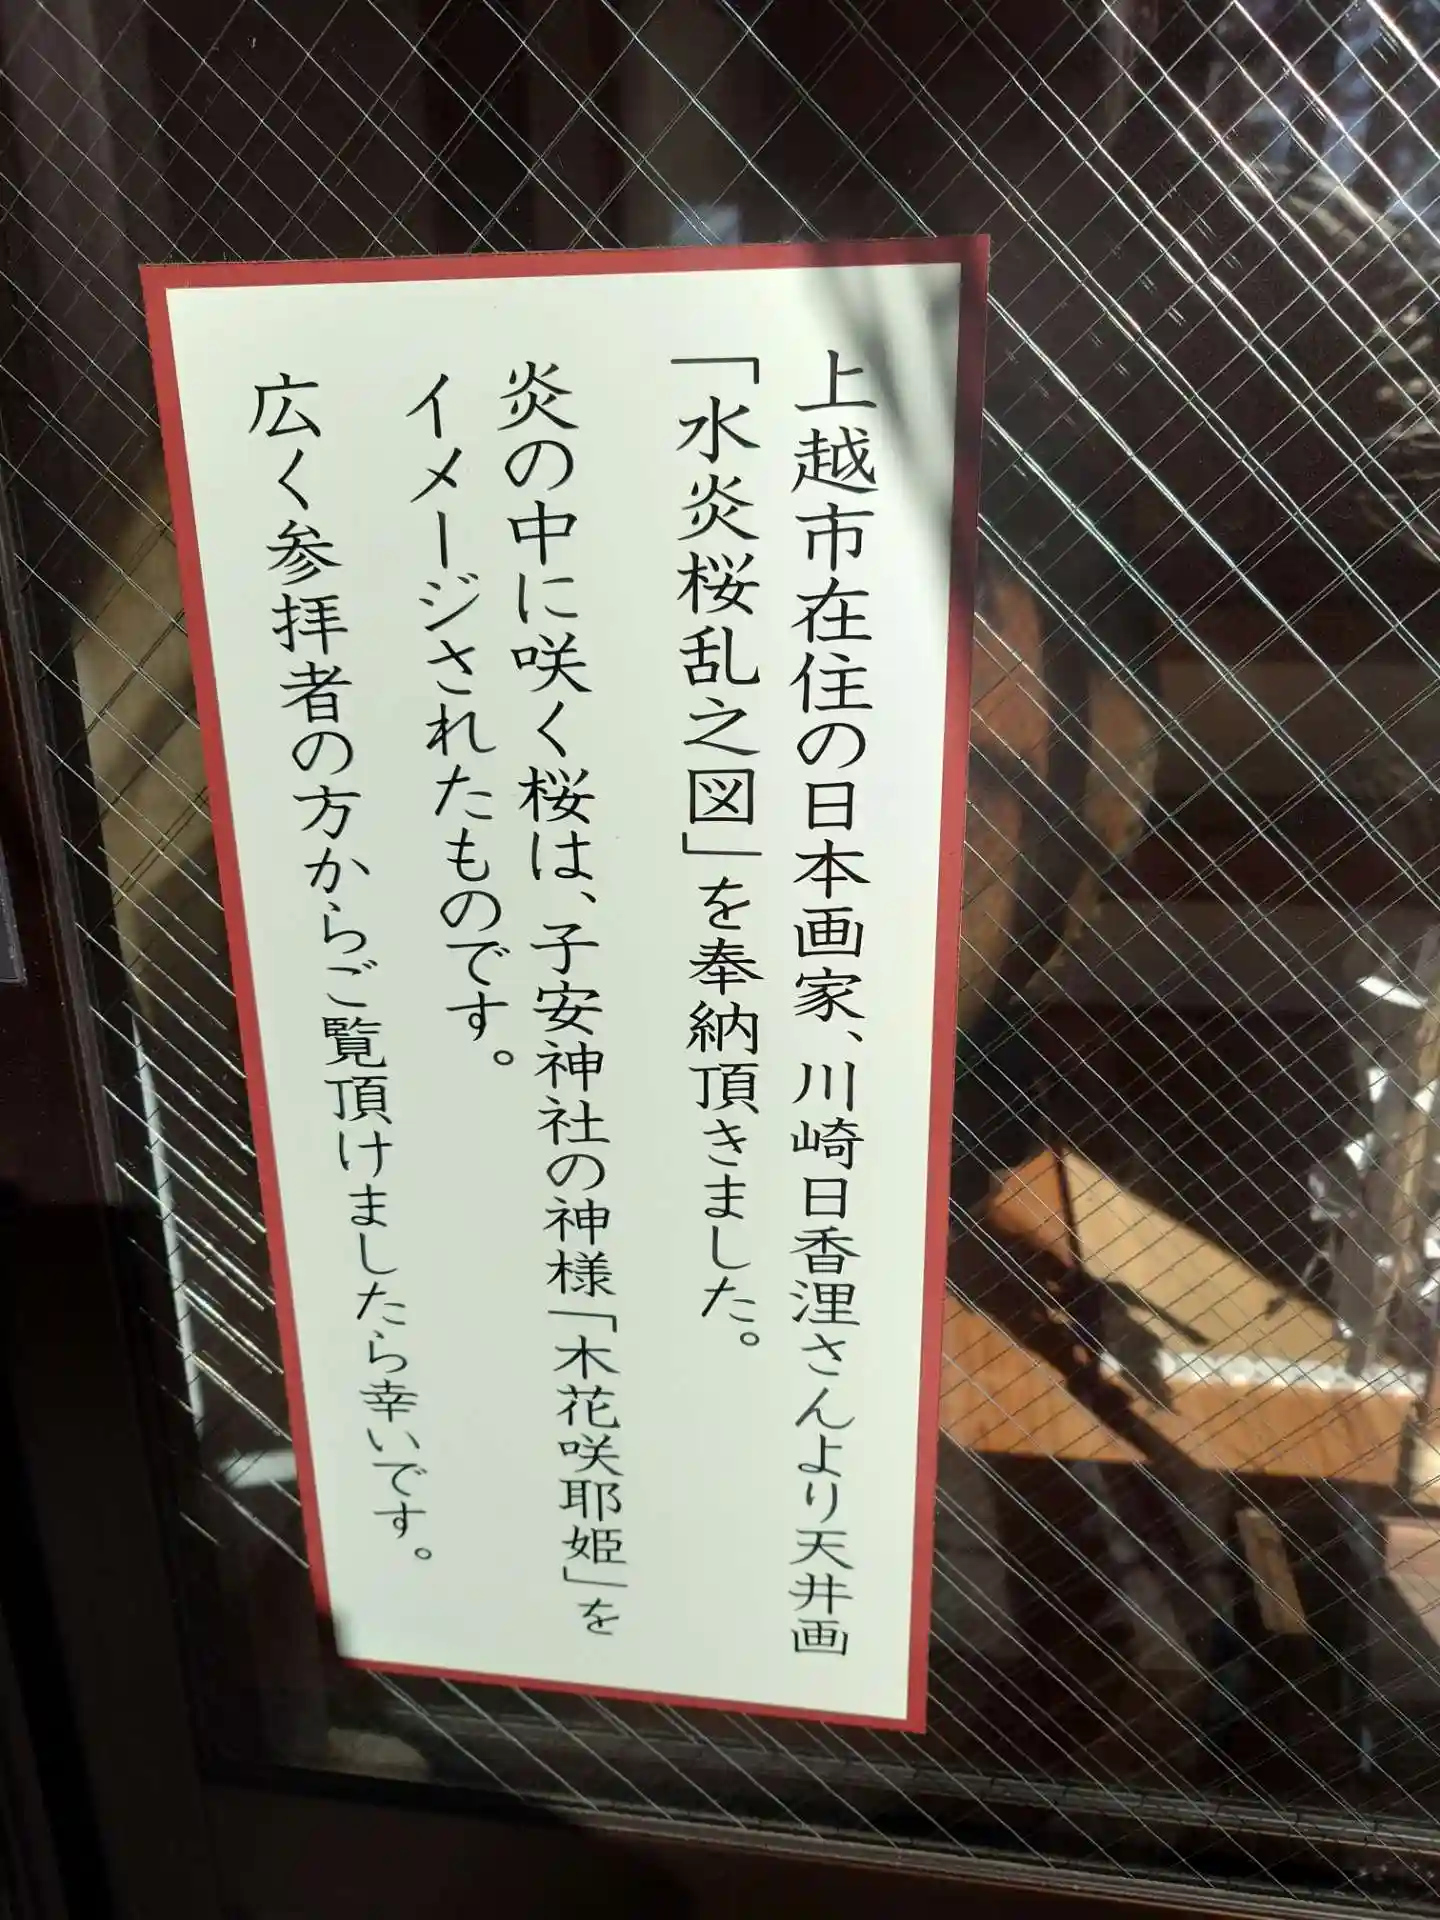 上越市在住の日本画家、川崎日香浬さんより天井画
「水炎桜乱之図」を奉納頂きました。
炎の中に咲く桜は、子安神社の神様「木花咲耶姫」を
イメージされたものです。
広く参拝者の方からご覧頂けましたら幸いです。